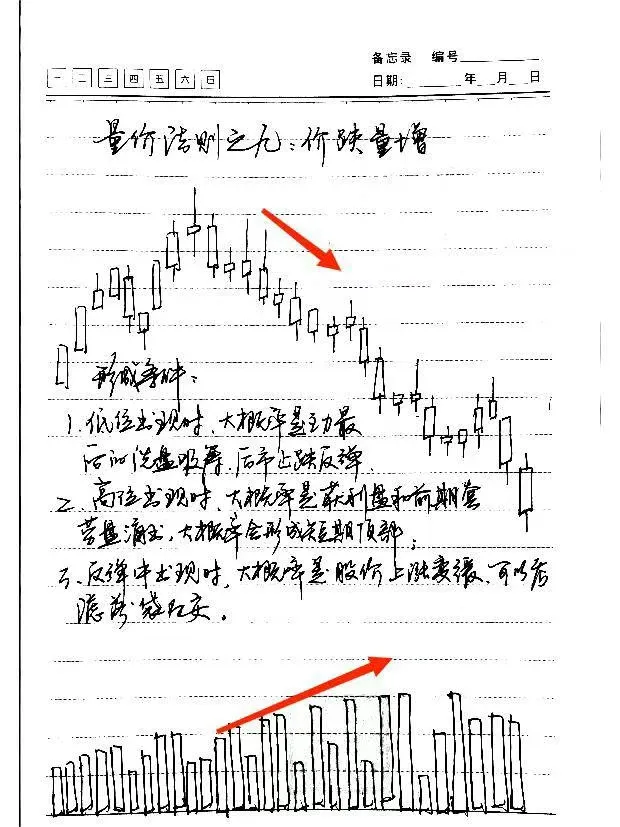 备忘录 编号
一 二 三 四 五 六 日
日期: 年 月 日
量价法则之九:价跌量增
形成条件:
1.低位出现时,大概率是主力最
后的洗盘吸筹,后市止跌反弹.
2、高位出现时,大概率是获利盘和前期套
营盘涌出,大概率会形成短期顶部;
3、反弹中出现时,大概率是股价上涨变缓,可以考
虑落袋为安。